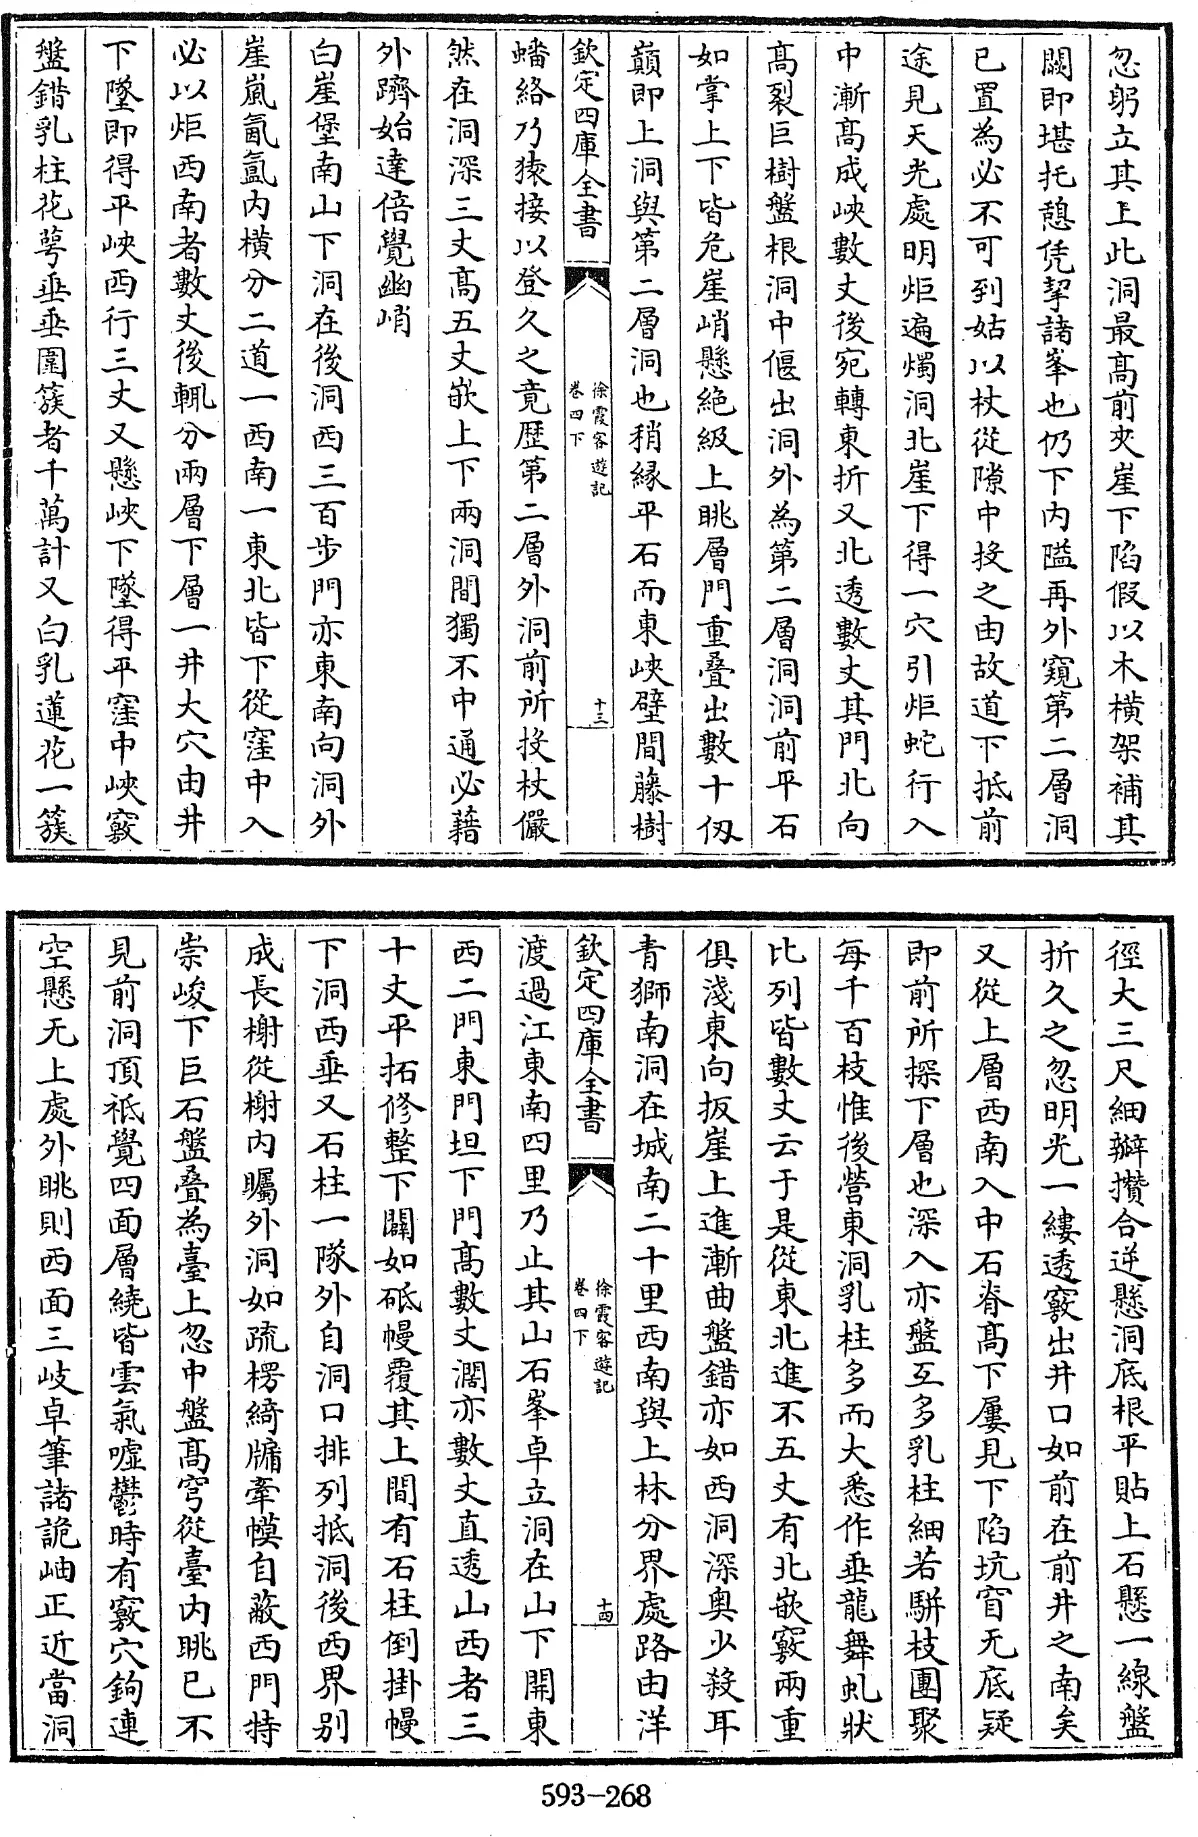 忽躬立其上此洞最髙前夾崖下陷假以木横架補其
闕即堪托憩凭挈諸峯也仍下内隘再外窺第二層洞
已置為必不可到姑以杖從隙中投之由故道下抵前
途見天光處明炬遍燭洞北崖下得一穴引炬蛇行入
中漸髙成峽數丈後宛轉東折又北透數丈其門北向
髙裂巨樹盤根洞中偃出洞外為第二層洞洞前平石
如掌上下皆危崖峭懸絶級上眺層門重疊出數十仭
巔即上洞與第二層洞也稍縁平石而東峽壁間藤樹
欽定四庫全書
徐霞客遊記
卷四下
十三
蟠絡乃猿接以登久之竟歴第二層外洞前所投杖儼
然在洞深三丈髙五丈嵌上下兩洞間獨不中通必藉
外躋始達倍覺幽峭
白崖堡南山下洞在後洞西三百步門亦東南向洞外
崖嵐氤氲内横分二道一西南一東北皆下從窪中入
必以炬西南者數丈後輒分兩層下層一井大穴由井
下墜即得平峽西行三丈又懸峽下墜得平窪中峽竅
盤錯乳柱花萼垂垂圍簇者千萬計又白乳蓮花一簇
徑大三尺細瓣攢合逆懸洞底根平貼上石懸一線盤
折久之忽明光一縷透竅出井口如前在前井之南矣
又從上層西南入中石脊髙下屢見下陷坑窅无底疑
即前所探下層也深入亦盤互多乳柱細若騈枝團聚
每千百枝惟後營東洞乳柱多而大悉作垂龍舞虬狀
比列皆數丈云于是從東北進不五丈有北嵌竅兩重
俱淺東向扳崖上進漸曲盤錯亦如西洞深奥少殺耳
青獅南洞在城南二十里西南與上林分界處路由洋
欽定四庫全書
徐霞客遊記
卷四下
十四
渡過江東南四里乃止其山石峯卓立洞在山下開東
西二門東門坦下門髙數丈濶亦數丈直透山西者三
十丈平拓修整下闢如砥幔覆其上間有石柱倒掛幔
下洞西垂又石柱一隊外自洞口排列抵洞後西界别
成長榭從榭内矚外洞如疏楞綺牖牽幙自蔽西門特
崇峻下巨石盤疊為臺上忽中盤髙穹從臺内眺已不
見前洞頂祗覺四面層繞皆雲氣嘘鬱時有竅穴鉤連
空懸无上處外眺則西面三岐卓筆諸詭岫正近當洞
593-268